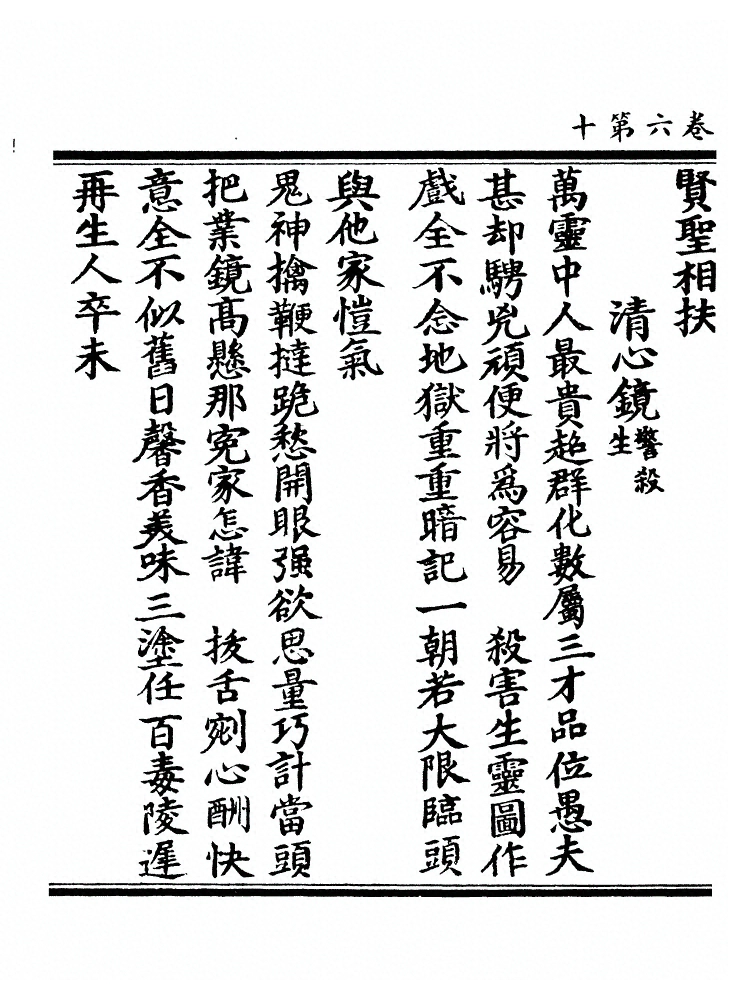 卷六第十
賢聖相扶
清心鏡 警殺生
萬靈中人最貴超群化數屬三才品位愚夫
甚却騁兇頑便將爲容易　殺害生靈圖作
戲全不念地獄重重暗記一朝若大限臨頭
與他家愷氣
鬼神擒鞭撻跪愁開眼强欲思量巧計當頭
把業鏡高懸那寃家怎諱　拔舌剜心酬快
意全不似舊日馨香美味三塗任百毒陵遲
再生人卒未